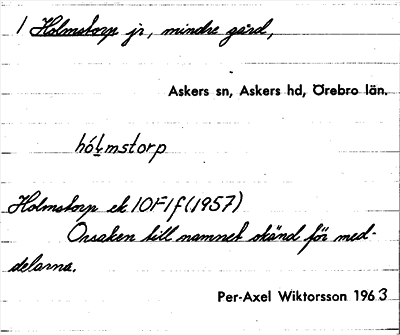 1 Holmstorp jr, mindre gård,
Askers sn, Askers hd, Örebro län.
hólmstorp
Holmstorp ek 10F1f (1957)
Orsaken till namnet okänd för med-
delarna.
Per-Axel Wiktorsson 1963